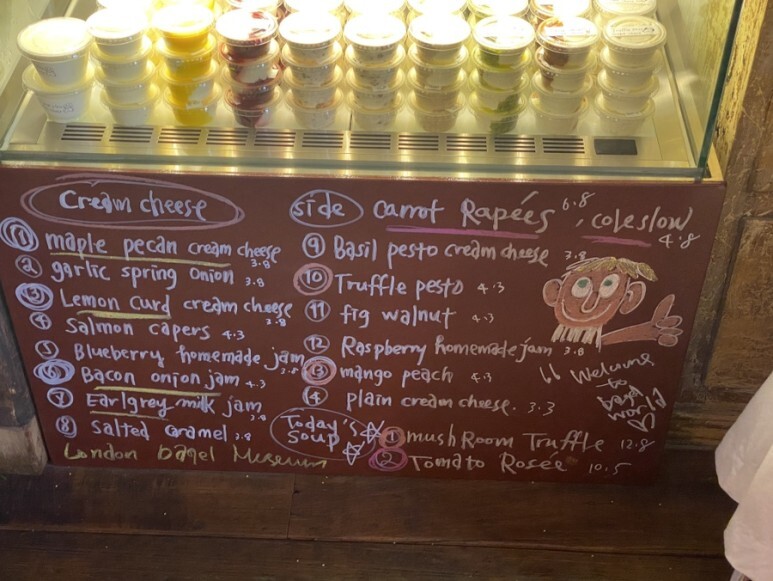 Cream cheese
① maple pecan cream cheese 3.8
② garlic spring onion 3.8
③ Lemon curd cream cheese 3.8
④ Salmon capers 4.3
⑤ Blueberry homemade jam 3.8
⑥ Bacon onion jam 4.3
⑦ Earlgrey milk jam 3.8
⑧ Salted caramel 3.8
London bagel Museum
side Carrot Rapées 6.8, coleslaw 4.8
⑨ Basil pesto cream cheese 3.8
⑩ Truffle pesto 4.3
⑪ fig walnut 4.3
⑫ Raspberry homemade jam 3.8
⑬ mango peach 4.3
⑭ plain cream cheese. 3.3
Today's
Soup
① mushRoom Truffle 12.8
② Tomato Rosée 10.5
“ Welcome
to
bagel
world